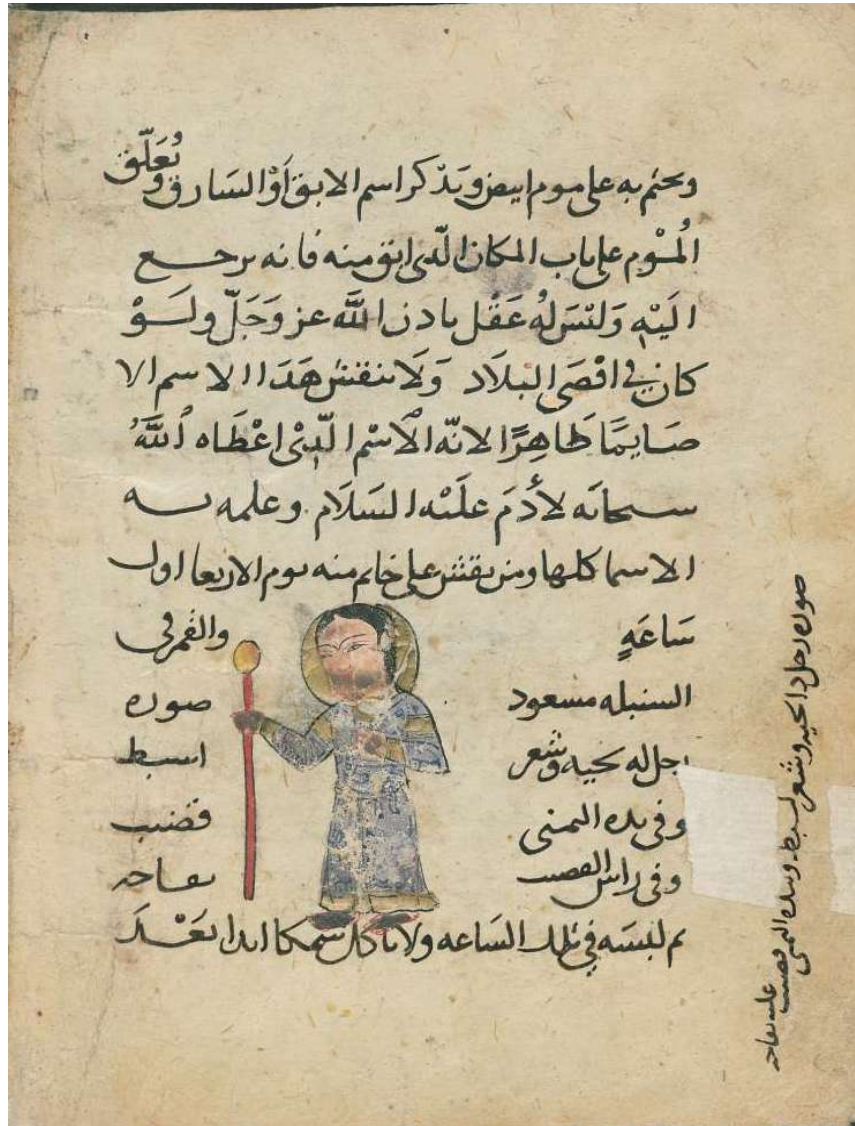 ويختم به على موم ابيض ويذكر اسم الابق أو السارق ويُعَلّق
المُوْم على باب المكان الّذى ابق منه فانه يرجع
اليْهِ وَليْسَ لهُ عَقْل باذن اللَّه عز وَجَلّ ولَوْ
كان في اقْصَى البلَاد وَلَا ينقش هَذَا الاسم الا
صَايمًا طَاهِرًا لانّه الاسْم الّذىْ اعْطَاه اللَّهُ
سبحانَه لأدَمَ علَيْه السَلَام وعلمه به
الاسما كلها ومن نقش على خاتم منه يوم الاربعا اول
سَاعَهٍ والقمر فى
السنبله مسعود صوره
رجل له لحيه وشعر اسبط
وفى يده اليمنى قضيب
وفى راس القضيب تفاحه
ثم لبسَه في تلك السَاعه ولا ياكل سَمكا ابدا بَعْدَ
صوره رجل ذا لحيه وشعر سبط وبيده اليمنى قضيب
عليه تفاحه